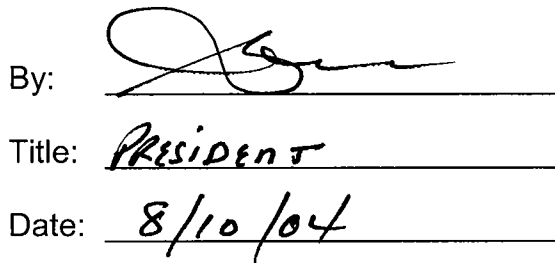 By:
Title: PRESIDENT
Date: 8/10/04